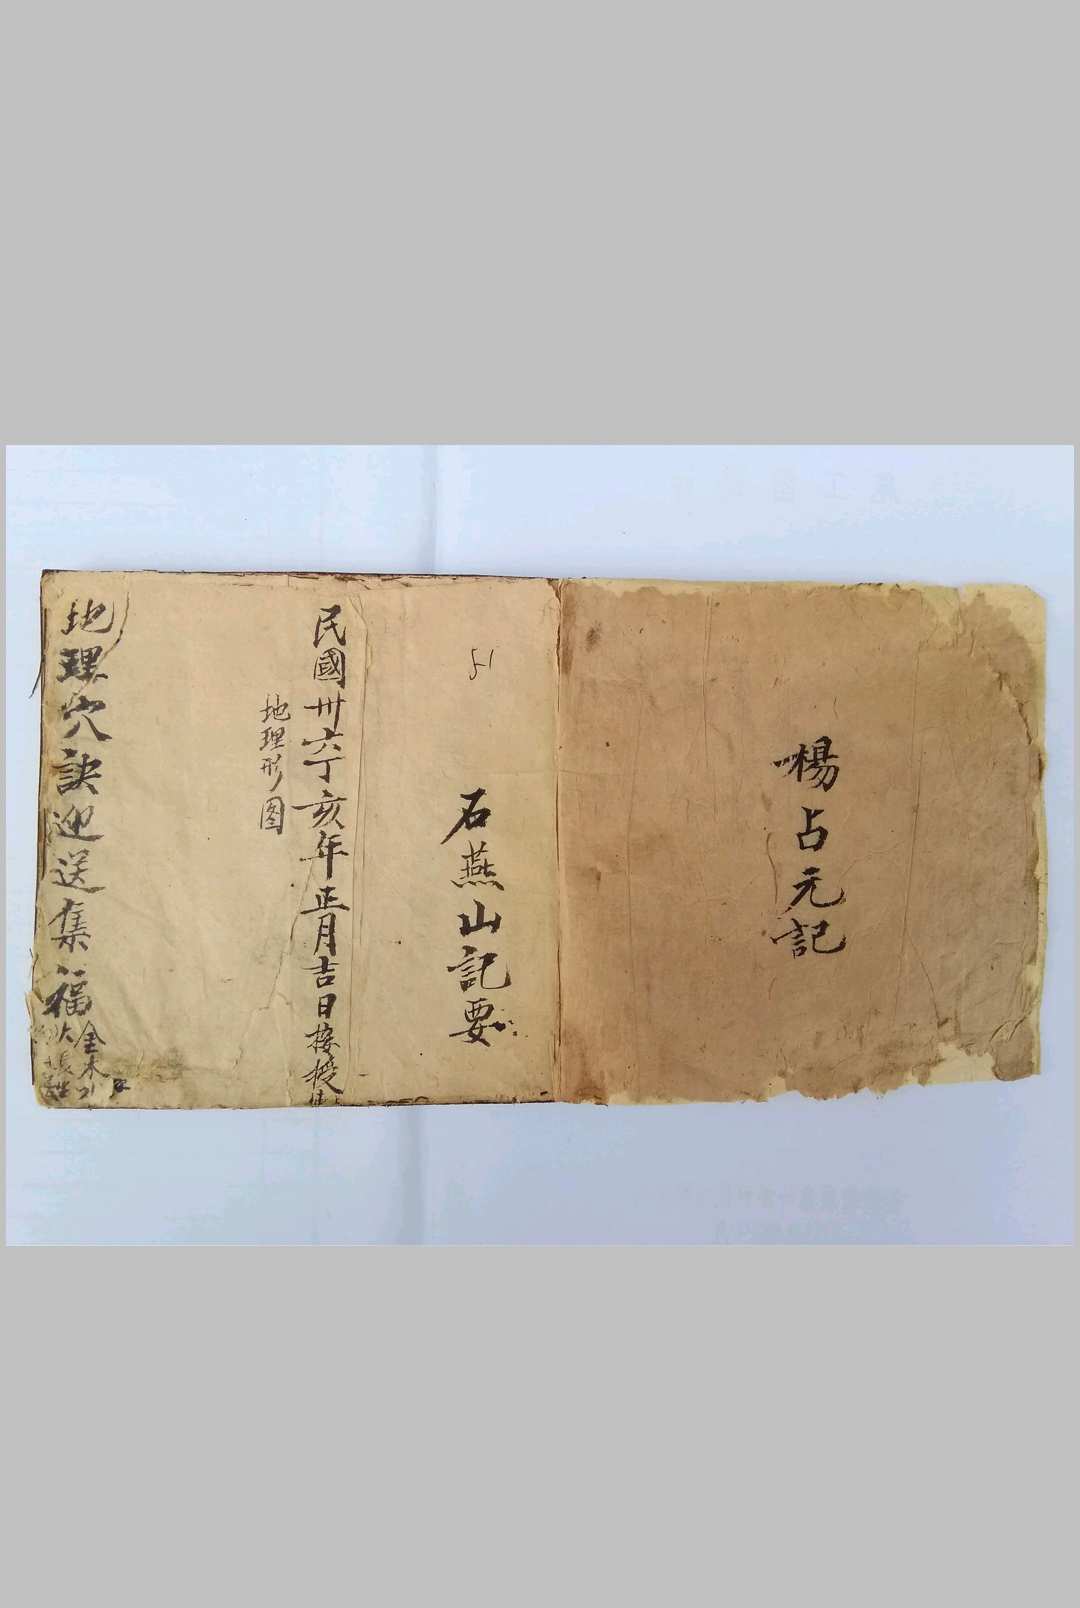 楊占元記
51
石燕山記要
民國卅六丁亥年正月吉日接授
地理形图
地理穴訣迎送集福
金木